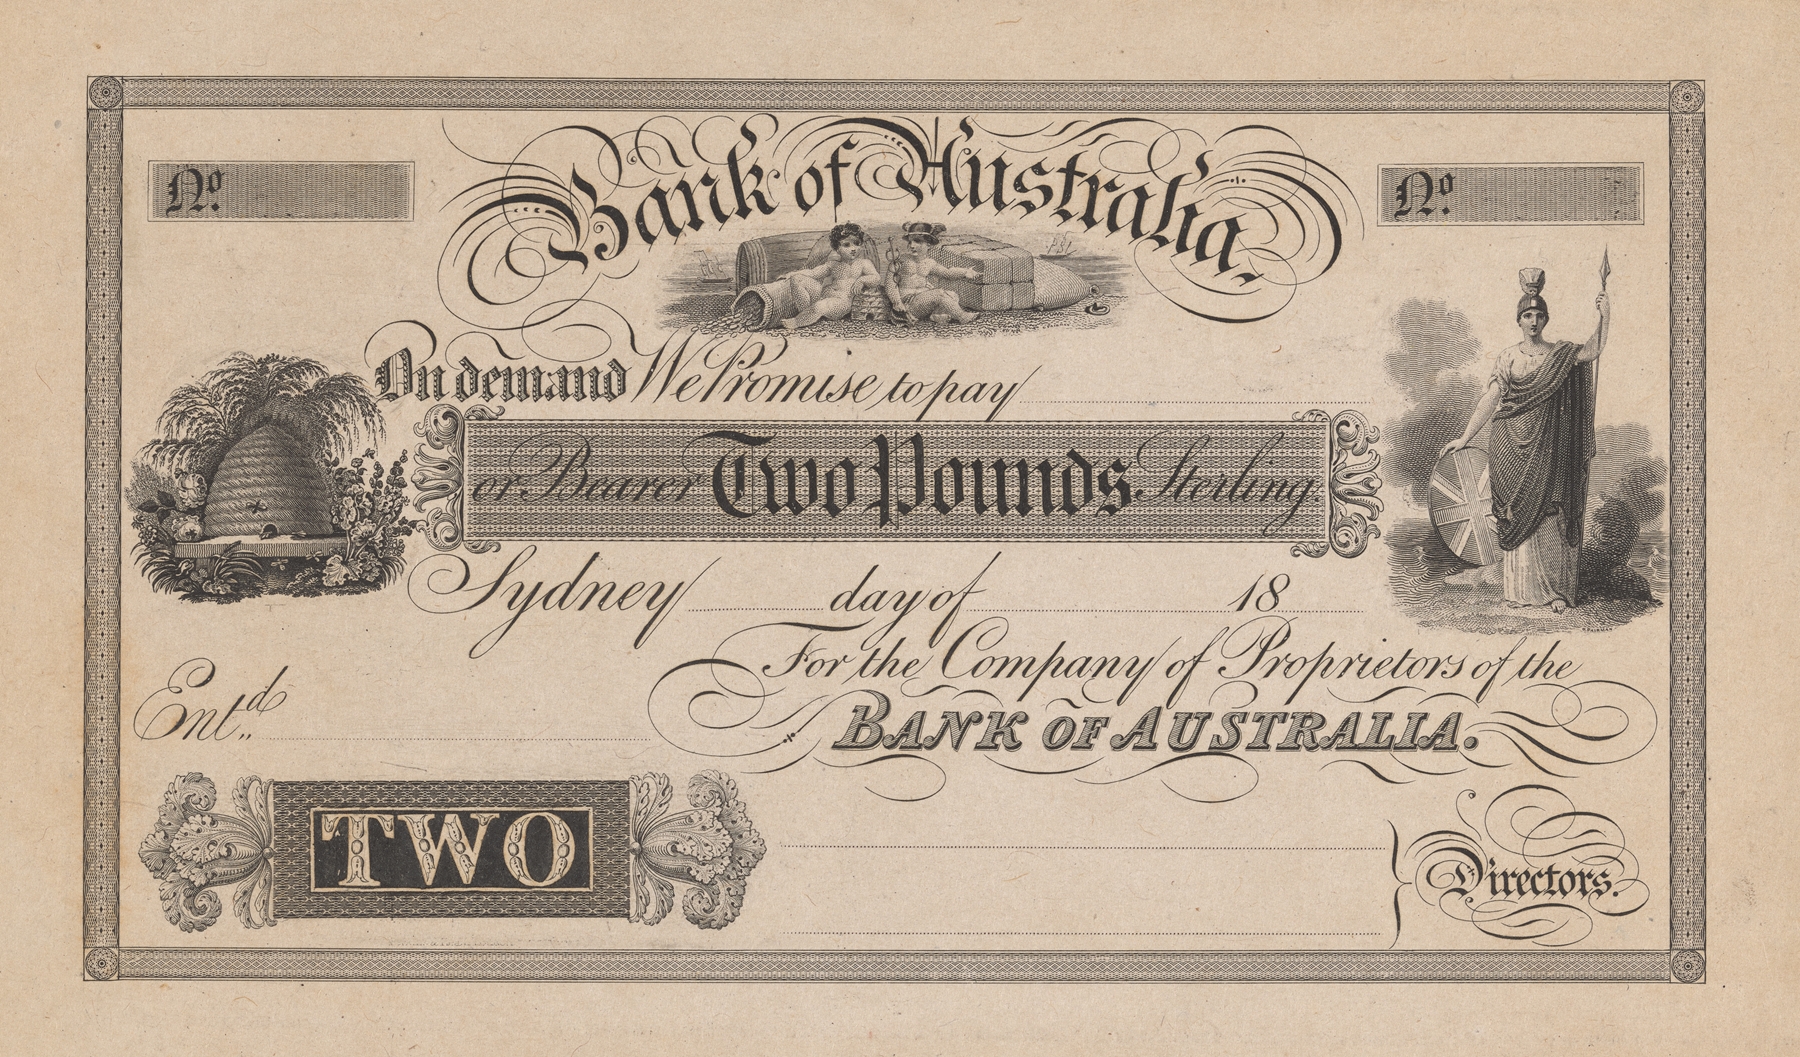 Bank of Australia.
No.
No.
On demand We Promise to pay
or Bearer Two Pounds Sterling.
Sydney day of 18
For the Company of Proprietors of the
BANK OF AUSTRALIA.
Entd.
TWO
Directors.